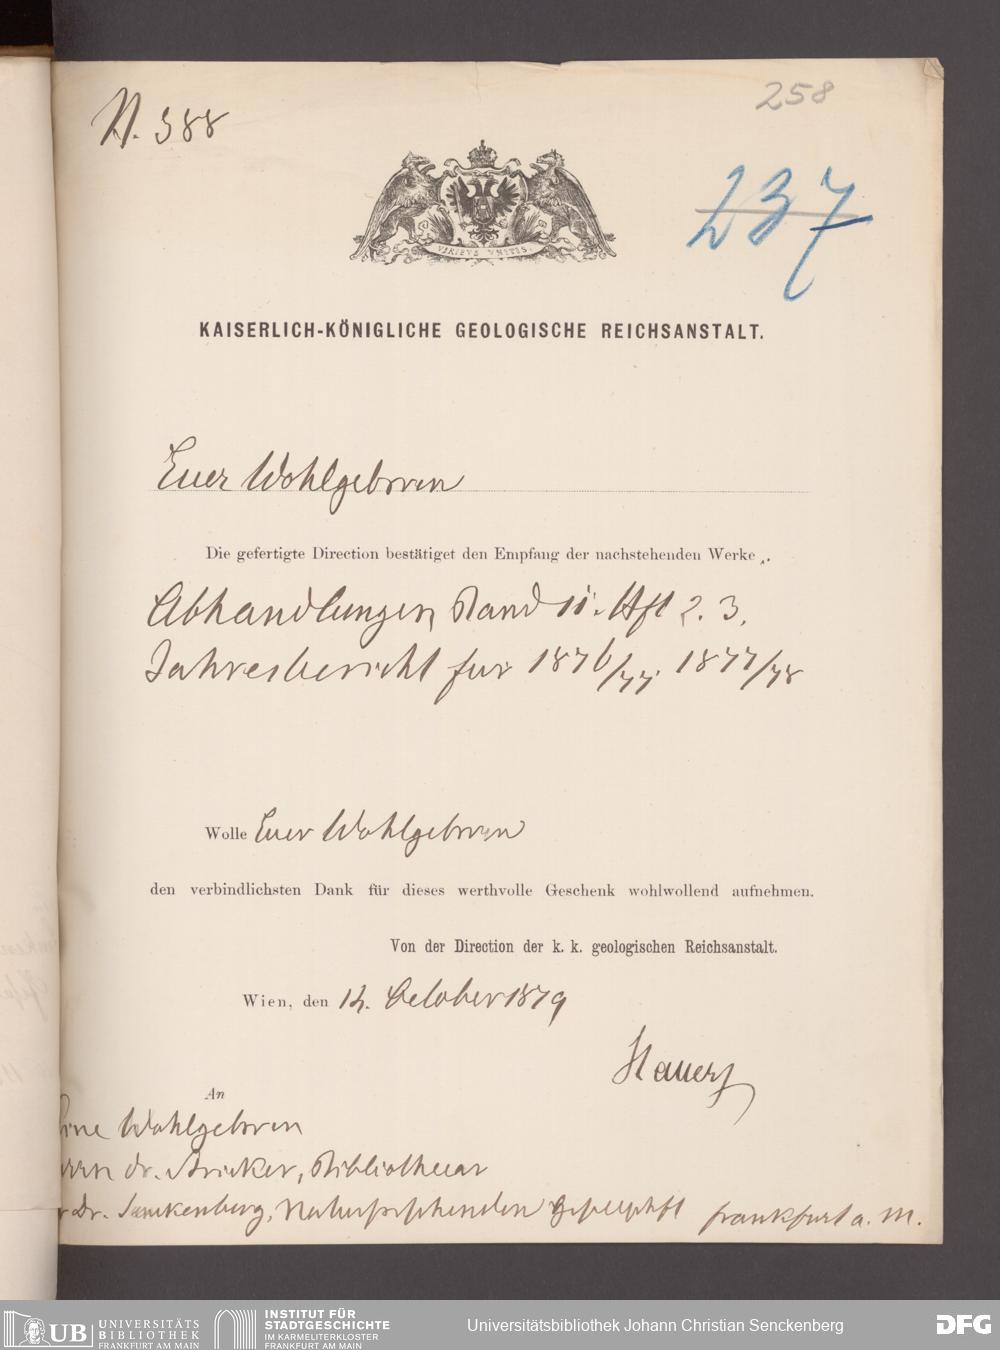 258
N. 388
237
VIRIBUS UNITIS
KAISERLICH-KÖNIGLICHE GEOLOGISCHE REICHSANSTALT.
Euer Wohlgeboren
Die gefertigte Direction bestätiget den Empfang der nachstehenden Werke.
Abhandlungen Band 11. Hft 2. 3.
Jahresbericht für 1876/77. 1877/78
Wolle Euer Wohlgeboren
den verbindlichsten Dank für dieses werthvolle Geschenk wohlwollend aufnehmen.
Von der Direction der k. k. geologischen Reichsanstalt.
Wien, den 14. October 1879
Hauer
An
Wohlgeboren
Dr. Stricker, Bibliothecar
Dr. Senkenberg. Naturforschenden Gesellschft Frankfurt a. M.
UB UNIVERSITÄTS
BIBLIOTHEK
FRANKFURT AM MAIN
INSTITUT FÜR
STADTGESCHICHTE
IM KARMELITERKLOSTER
FRANKFURT AM MAIN
Universitätsbibliothek Johann Christian Senckenberg
DFG